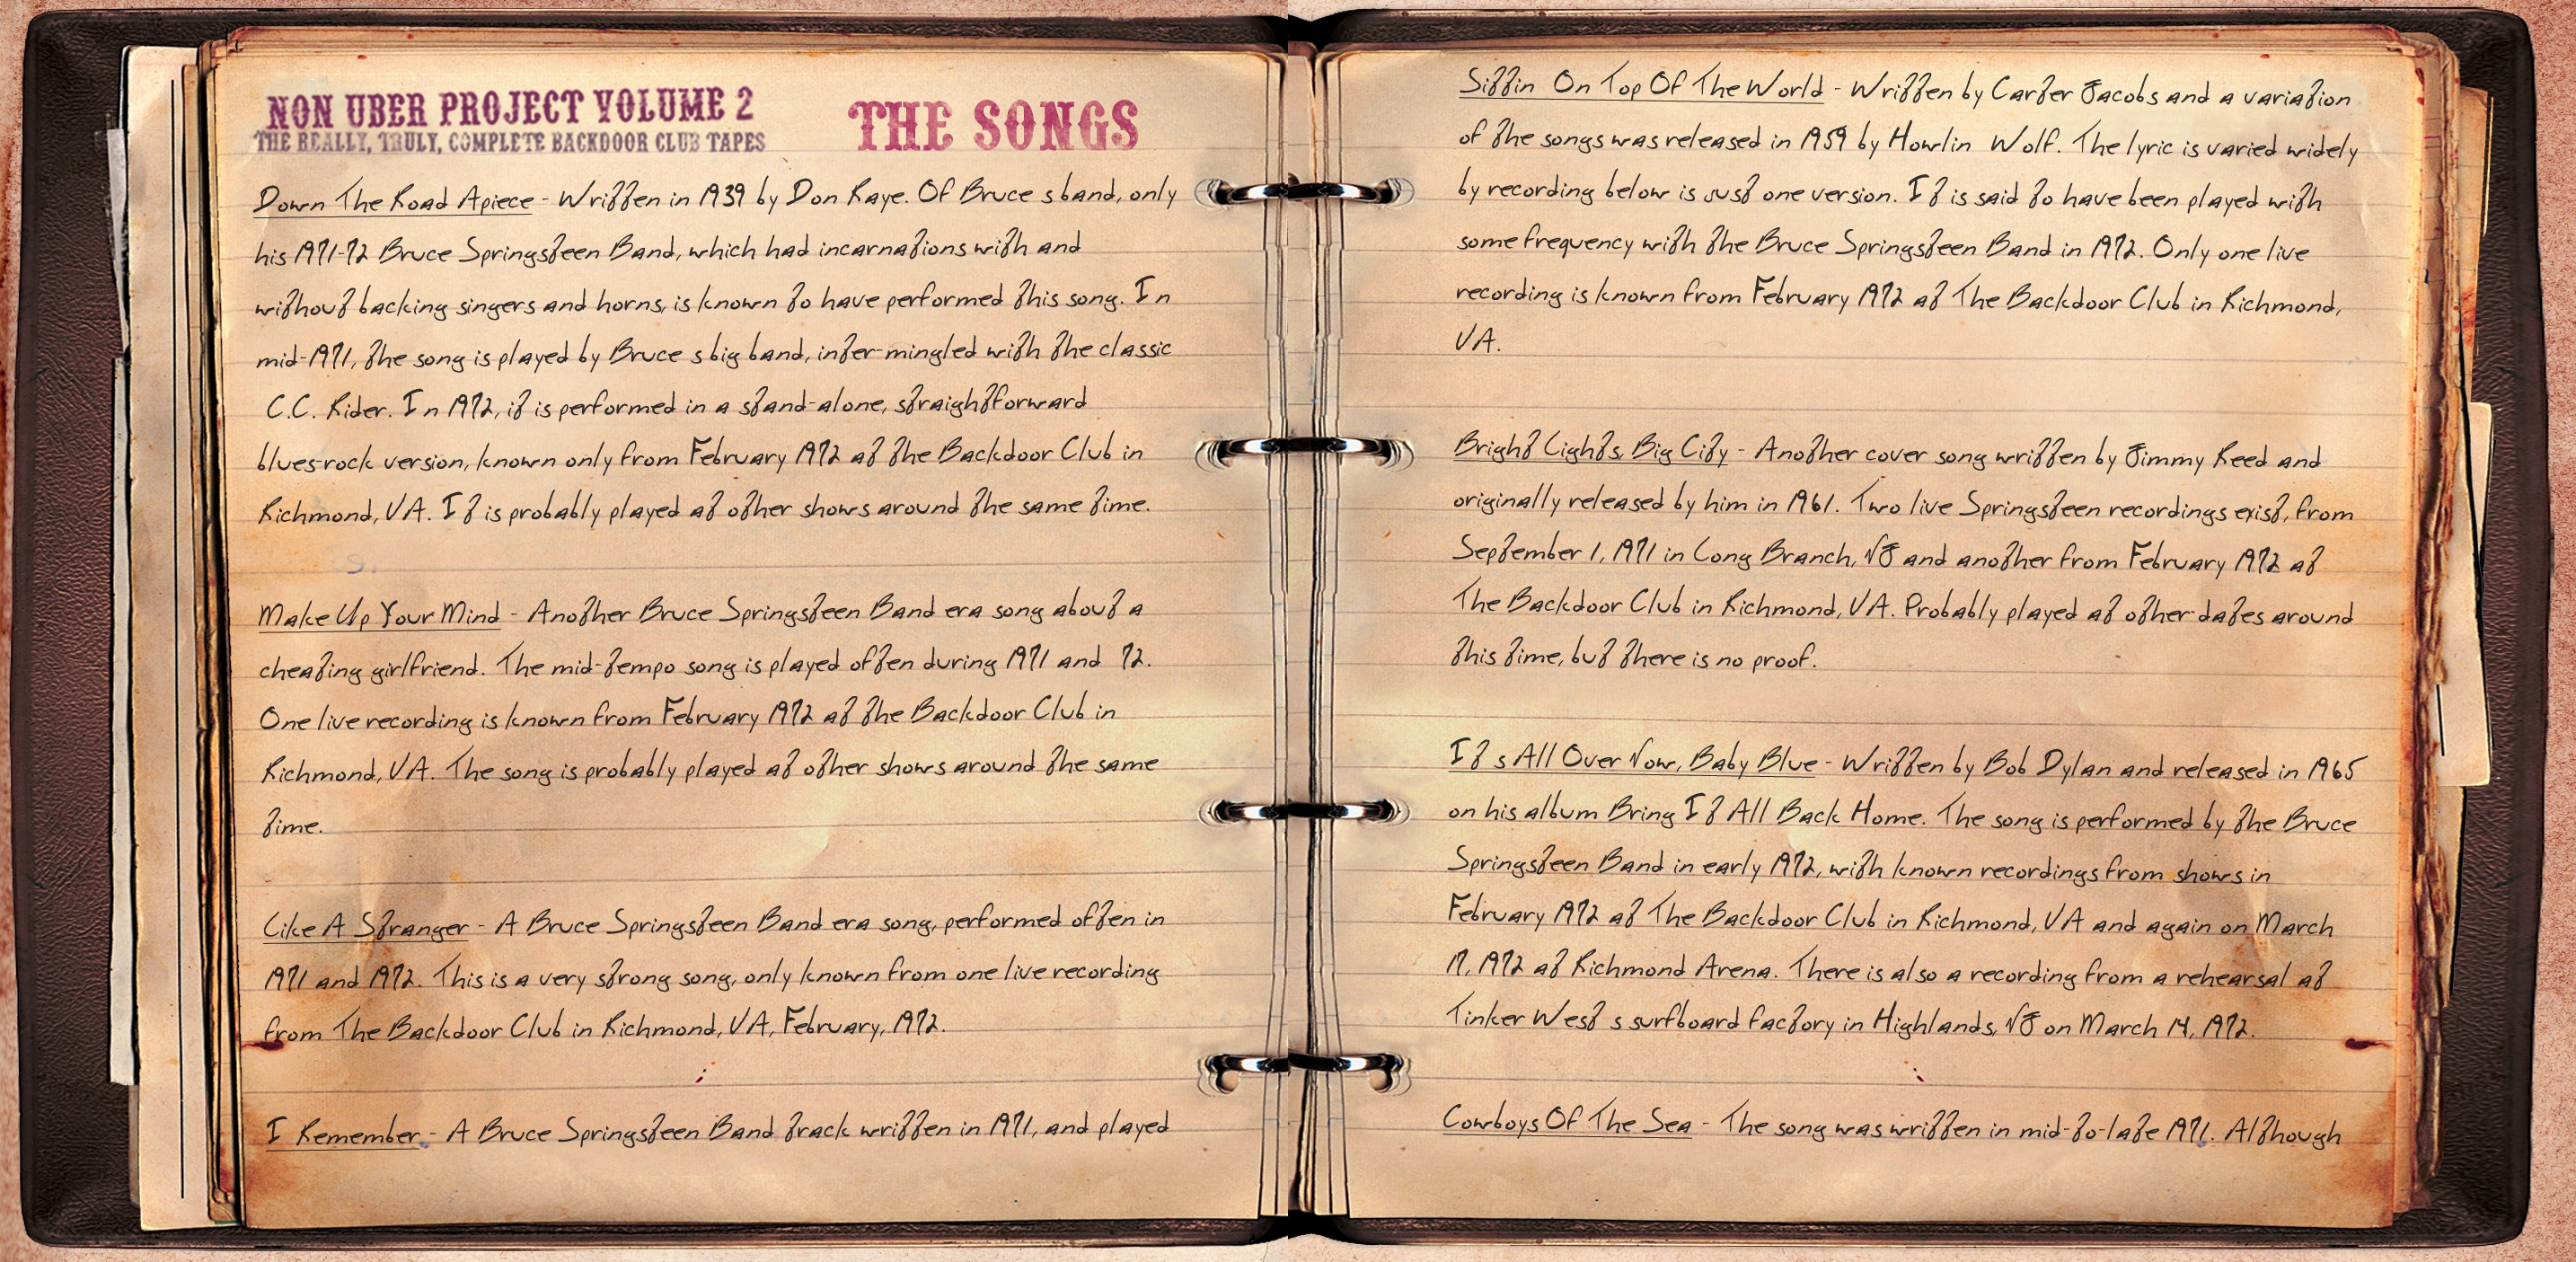 NON UBER PROJECT VOLUME 2
THE REALLY, TRULY, COMPLETE BACKDOOR CLUB TAPES
THE SONGS
Down The Road Apiece - Written in 1939 by Don Raye. Of Bruce s band, only
his 1971-72 Bruce Springsteen Band, which had incarnations with and
without backing singers and horns, is known to have performed this song. In
mid-1971, the song is played by Bruce s big band, inter-mingled with the classic
C.C. Rider. In 1972, it is performed in a stand-alone, straightforward
blues-rock version, known only from February 1972 at the Backdoor Club in
Richmond, VA. It is probably played at other shows around the same time.
Make Up Your Mind - Another Bruce Springsteen Band era song about a
cheating girlfriend. The mid-tempo song is played often during 1971 and 72.
One live recording is known from February 1972 at the Backdoor Club in
Richmond, VA. The song is probably played at other shows around the same
time.
Like A Stranger - A Bruce Springsteen Band era song, performed often in
1971 and 1972. This is a very strong song, only known from one live recording
from The Backdoor Club in Richmond, VA, February, 1972.
I Remember - A Bruce Springsteen Band track written in 1971, and played
Sittin On Top Of The World - Written by Carter Jacobs and a variation
of the songs was released in 1959 by Howlin Wolf. The lyric is varied widely
by recording below is just one version. It is said to have been played with
some frequency with the Bruce Springsteen Band in 1972. Only one live
recording is known from February 1972 at The Backdoor Club in Richmond,
VA.
Bright Lights, Big City - Another cover song written by Jimmy Reed and
originally released by him in 1961. Two live Springsteen recordings exist, from
September 1, 1971 in Long Branch, NJ and another from February 1972 at
The Backdoor Club in Richmond, VA. Probably played at other dates around
this time, but there is no proof.
It s All Over Now, Baby Blue - Written by Bob Dylan and released in 1965
on his album Bring It All Back Home. The song is performed by the Bruce
Springsteen Band in early 1972, with known recordings from shows in
February 1972 at The Backdoor Club in Richmond, VA and again on March
17, 1972 at Richmond Arena. There is also a recording from a rehearsal at
Tinker West s surfboard factory in Highlands, NJ on March 14, 1972.
Cowboys Of The Sea - The song was written in mid-to-late 1971. Although